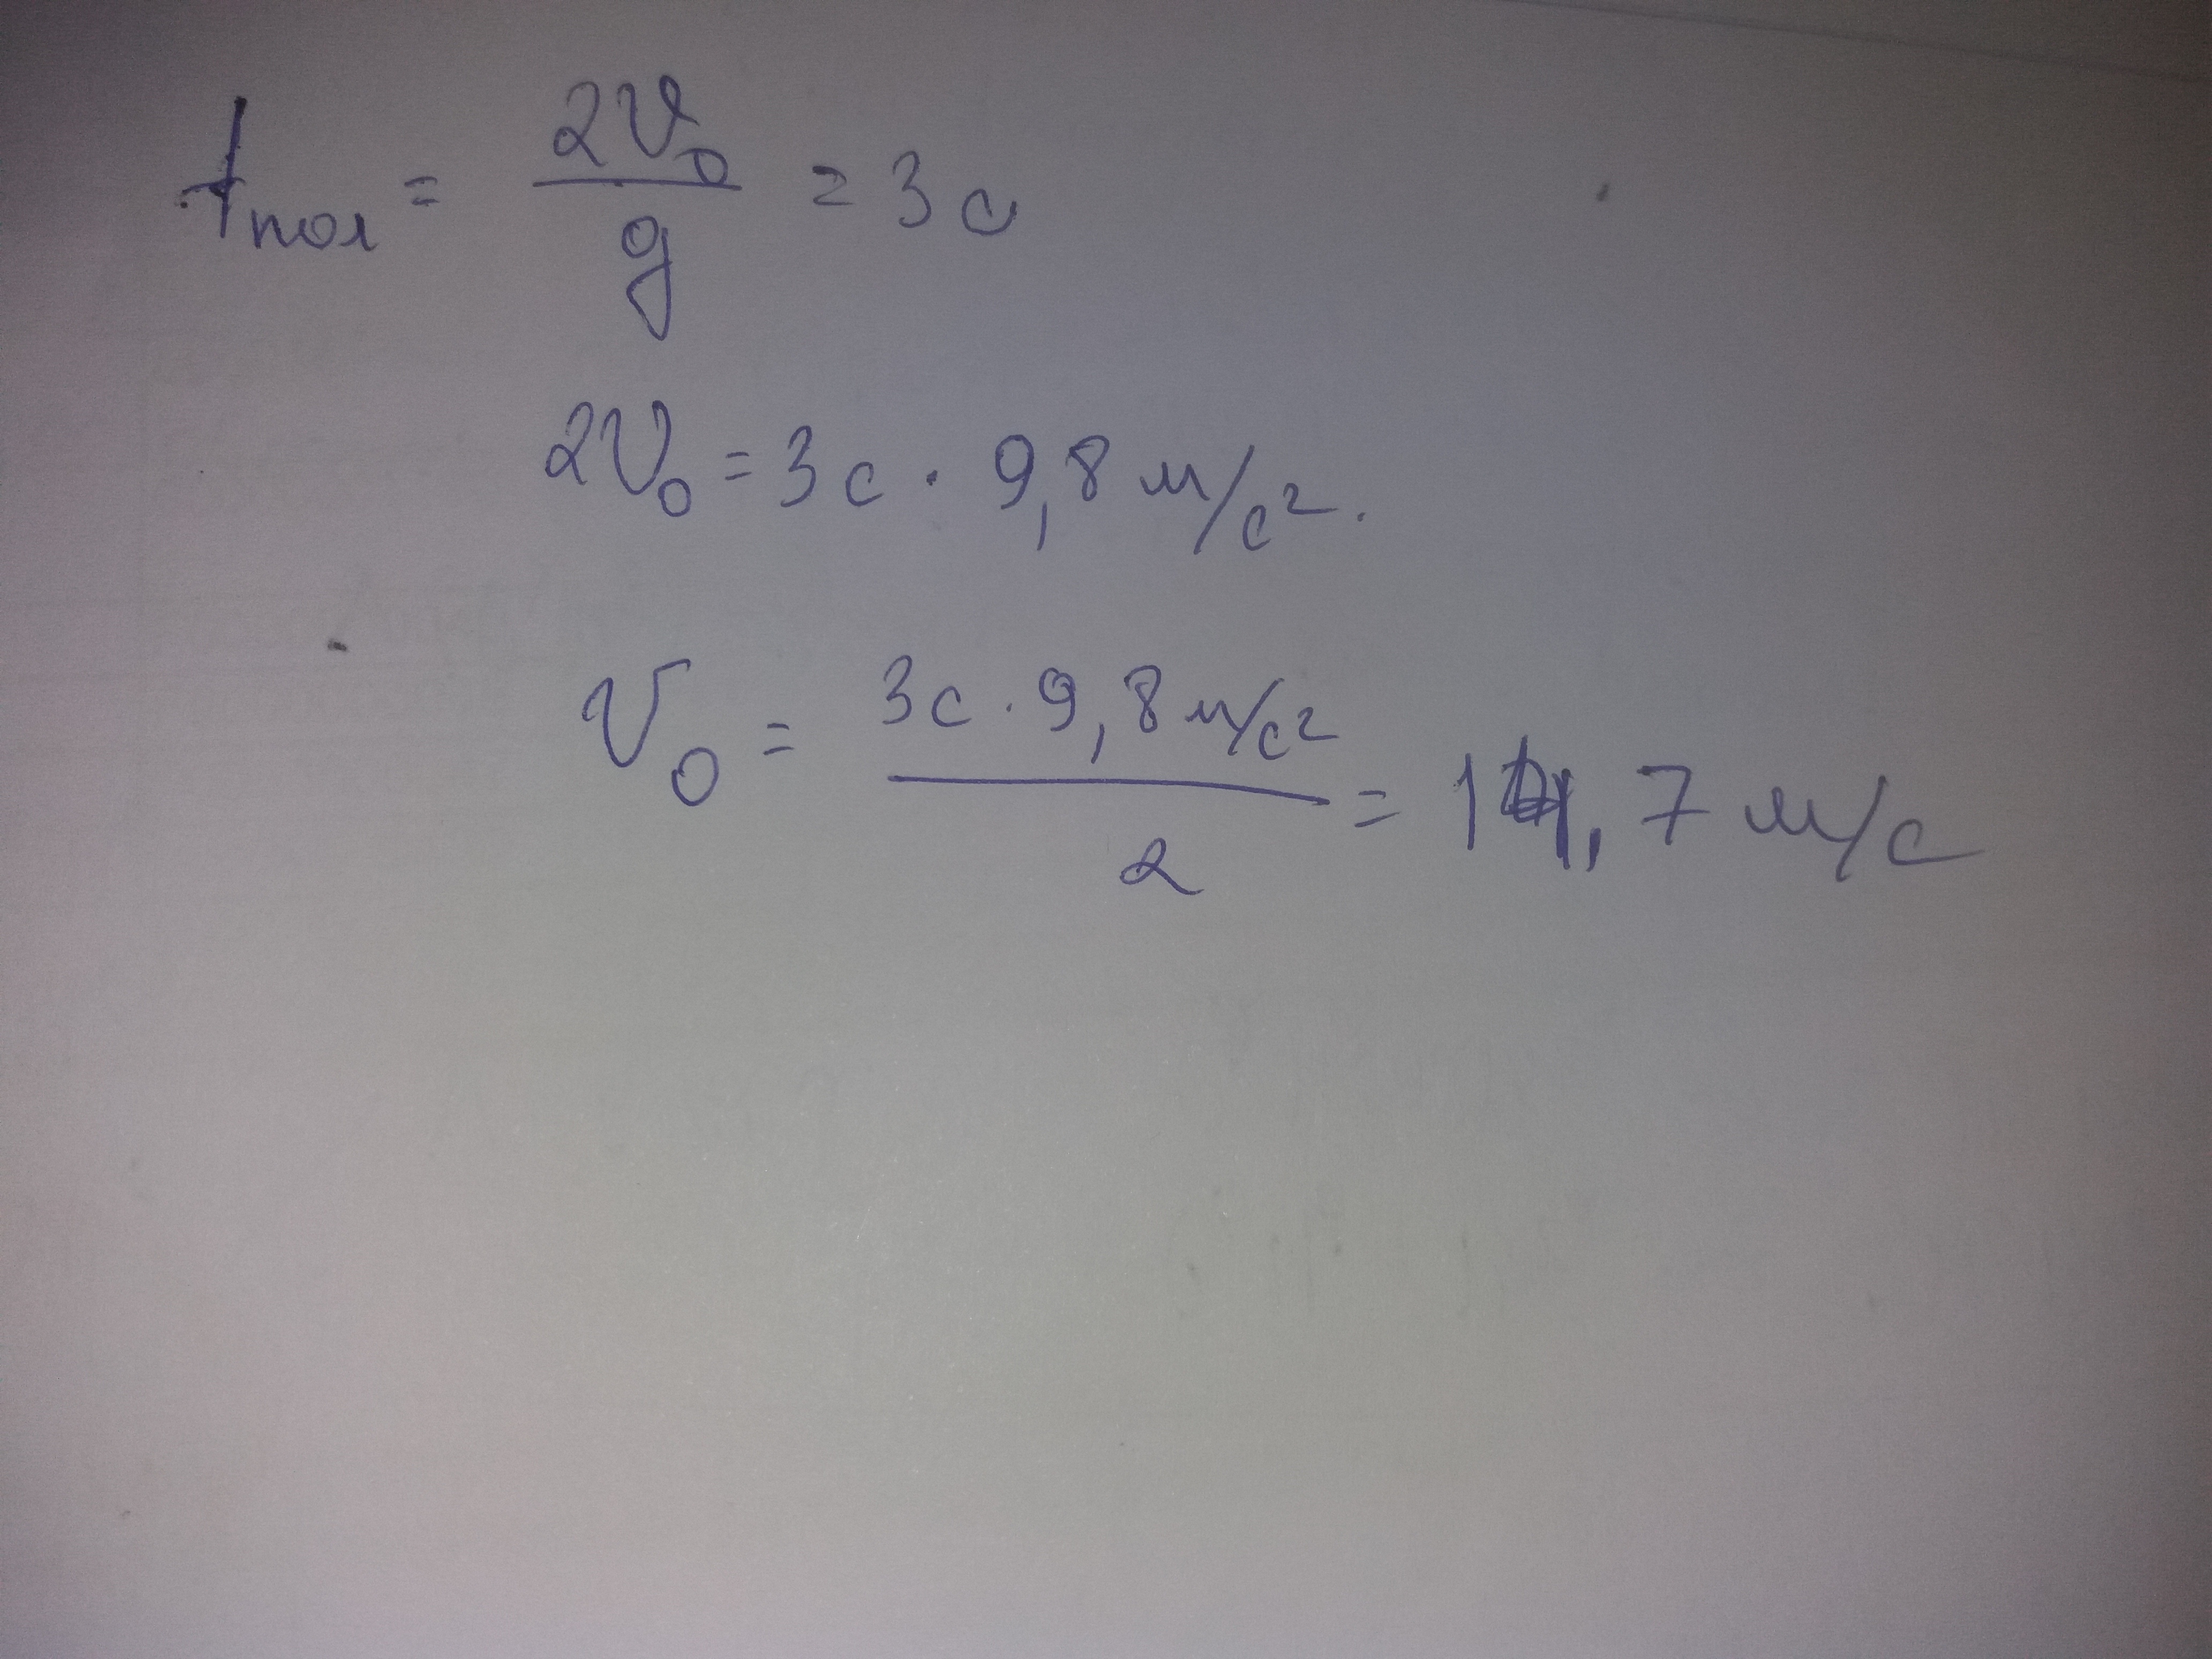 tпол = 2V₀/g = 3 с
2V₀ = 3 с · 9,8 м/с².
V₀ = 3 с · 9,8 м/с² / 2 = 14,7 м/с